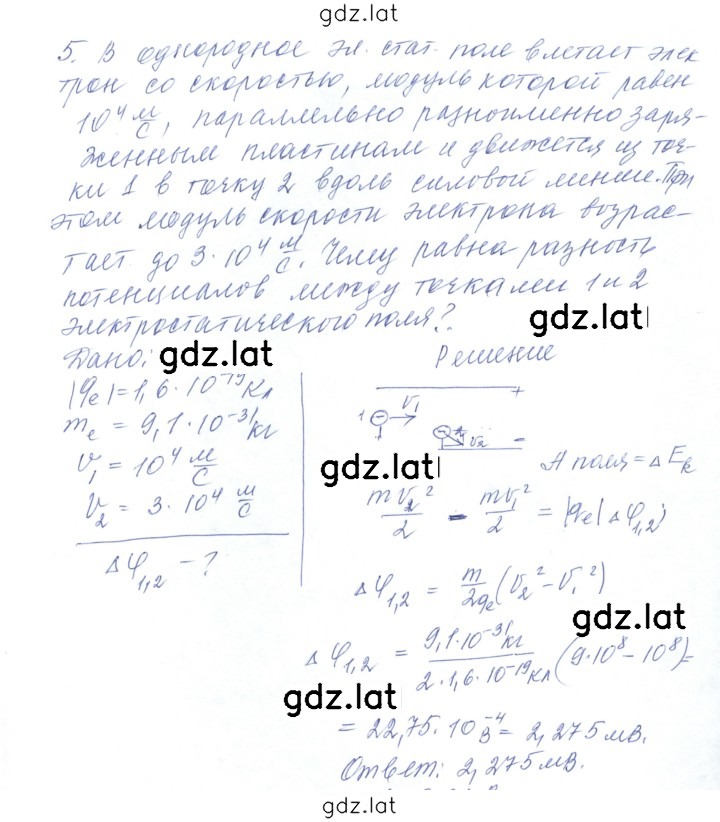 gdz.lat
5. В однородное эл. стат. поле влетает элек-
трон со скоростью, модуль которой равен
10⁴ м/с, параллельно разноименно заря-
женным пластинам и движется из точ-
ки 1 в точку 2 вдоль силовой линии. При
этом модуль скорости электрона возрас-
тает до 3·10⁴ м/с. Чему равна разность
потенциалов между точками 1 и 2
электростатического поля?
gdz.lat
Дано:
gdz.lat
|qe| = 1,6·10⁻¹⁹ Кл
me = 9,1·10⁻³¹ кг
v₁ = 10⁴ м/с
v₂ = 3·10⁴ м/с
Δφ₁,₂ - ?
Решение
+
1 - v₁
- v₂ -
gdz.lat
A поля = ΔEk
mv₂²/2 - mv₁²/2 = |qe| Δφ₁,₂
Δφ₁,₂ = m/2qe (v₂² - v₁²)
gdz.lat
Δφ₁,₂ = 9,1·10⁻³¹ кг / 2·1,6·10⁻¹⁹ Кл (9·10⁸ - 10⁸) =
gdz.lat
= 22,75·10⁻⁴ В = 2,275 мВ.
Ответ: 2,275 мВ.
gdz.lat